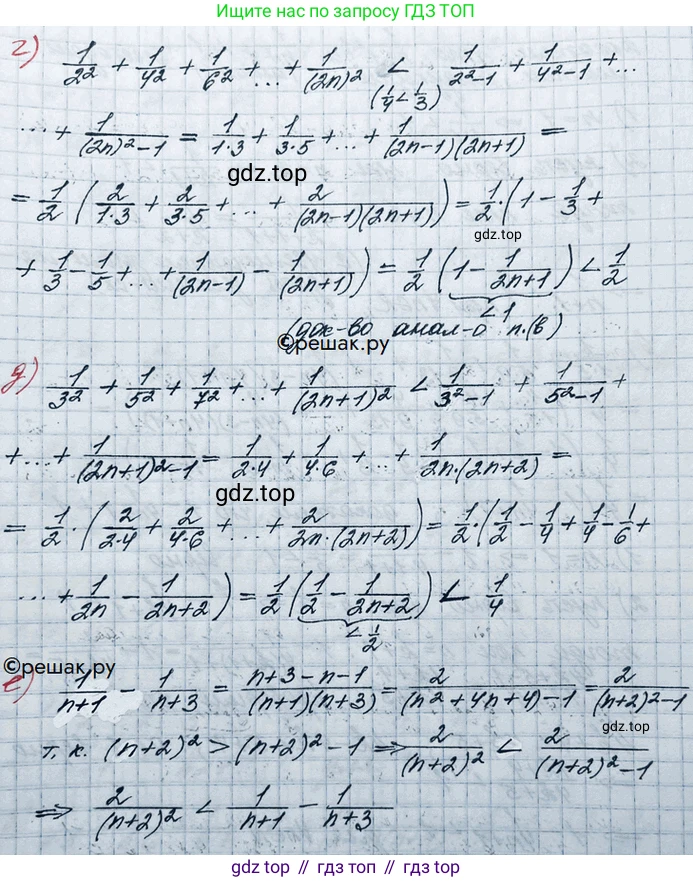 Ищите нас по запросу ГДЗ ТОП
г) 1/2² + 1/4² + 1/6² + ... + 1/(2n)² < 1/(2²-1) + 1/(4²-1) + ...
(1/4 < 1/3)
... + 1/((2n)²-1) = 1/(1·3) + 1/(3·5) + ... + 1/((2n-1)(2n+1)) =
gdz.top
= 1/2 (2/(1·3) + 2/(3·5) + ... + 2/((2n-1)(2n+1))) = 1/2·(1 - 1/3 +
gdz.top
+ 1/3 - 1/5 + ... + 1/(2n-1) - 1/(2n+1)) = 1/2 (1 - 1/(2n+1)) < 1/2
< 1
(док-во анал-о п.(в)
©решак.ру
д) 1/3² + 1/5² + 1/7² + ... + 1/(2n+1)² < 1/(3²-1) + 1/(5²-1) +
+ ... + 1/((2n+1)²-1) = 1/(2·4) + 1/(4·6) + ... + 1/(2n·(2n+2)) =
gdz.top
= 1/2·(2/(2·4) + 2/(4·6) + ... + 2/(2n·(2n+2))) = 1/2·(1/2 - 1/4 + 1/4 - 1/6 +
... + 1/2n - 1/(2n+2)) = 1/2 (1/2 - 1/(2n+2)) < 1/4
< 1/2
©решак.ру
е) 1/(n+1) - 1/(n+3) = (n+3-n-1)/((n+1)(n+3)) = 2/((n²+4n+4)-1) = 2/((n+2)²-1)
gdz.top
т.к. (n+2)² > (n+2)² - 1 ⇒ 2/(n+2)² < 2/((n+2)²-1)
⇒ 2/(n+2)² < 1/(n+1) - 1/(n+3)
gdz.top // гдз топ // gdz.top // гдз топ // gdz.top